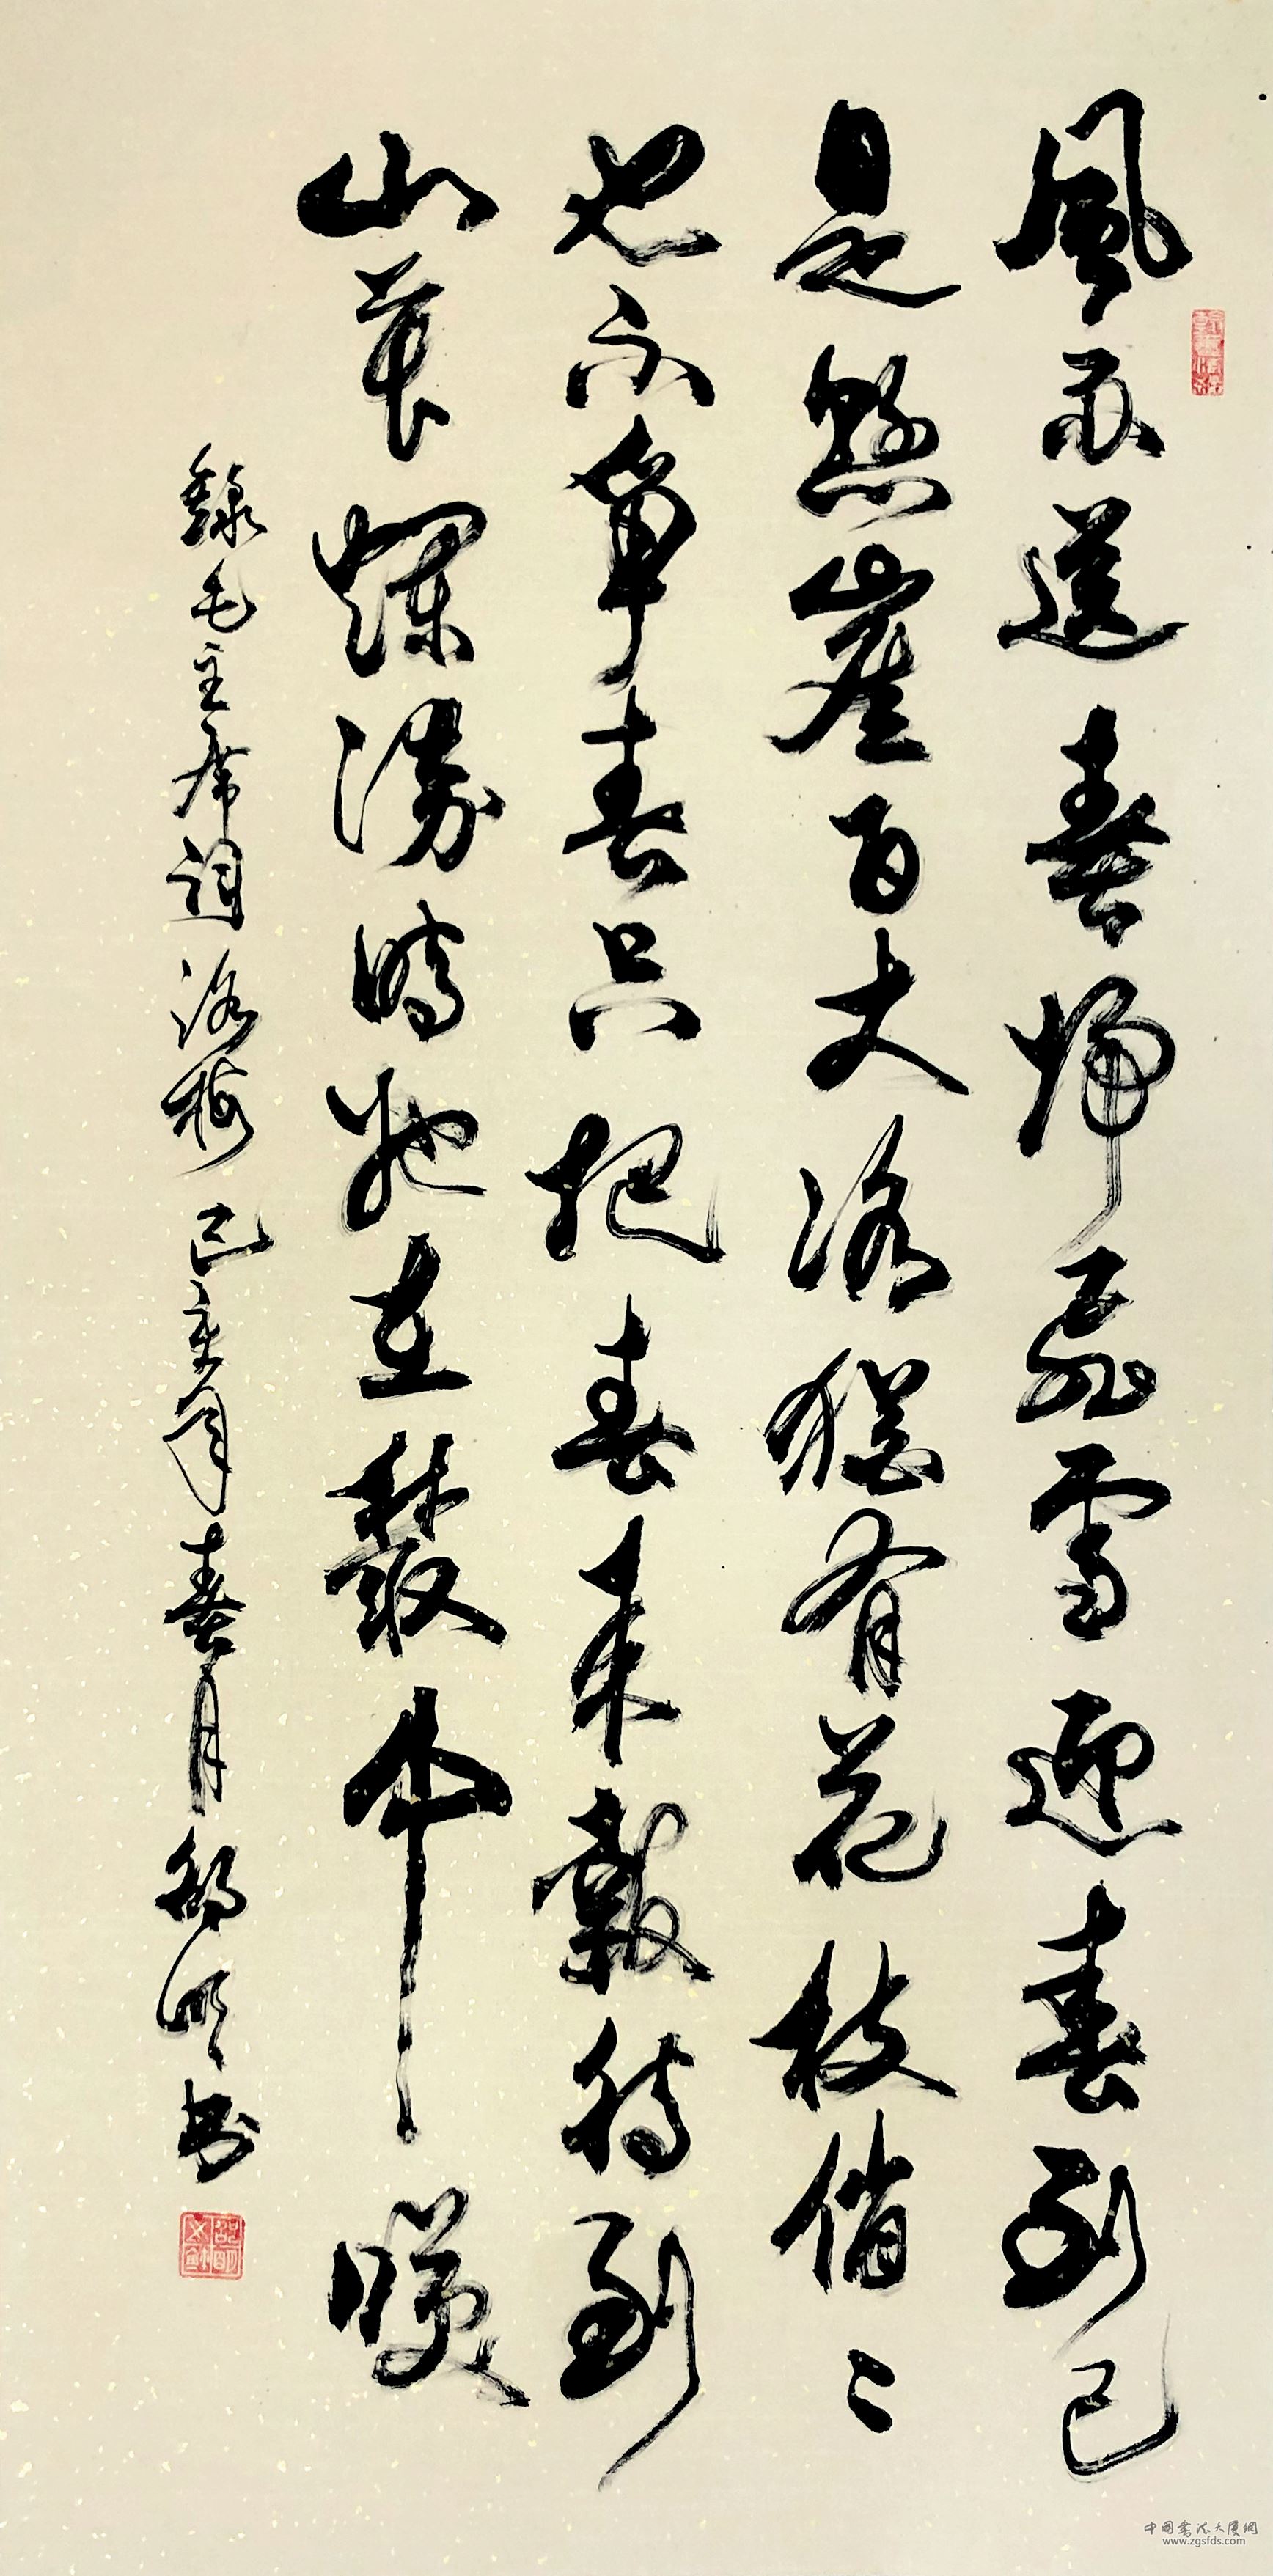 風雨送春歸飛雪迎春到已
是懸崖百丈冰猶有花枝俏〻
也不爭春只把春來報待到
山花爛漫時她在叢中笑
錄毛主席詞詠梅 己亥年春月邵明書
中國書法大厦網
www.zgsfds.com